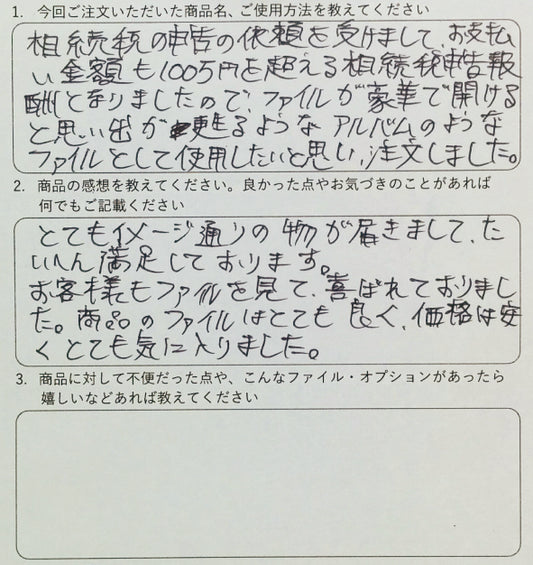 1. 今回ご注文いただいた商品名、ご使用方法を教えてください
相続税の申告の依頼を受けまして、お支払
い金額も100万円を超える相続税申告報
酬となりましたので、ファイルが豪華で開ける
と思い出が甦るような アルバムのような
ファイルとして使用したいと思い、注文しました。
2. 商品の感想を教えてください。良かった点やお気づきのことがあれば
何でもご記載ください
とてもイメージ通りの物が届きまして、た
いへん満足しております。
お客様もファイルを見て、喜ばれておりまし
た。商品のファイルはとても良く、価格は安
くとても気に入りました。
3. 商品に対して不便だった点や、こんなファイル・オプションがあったら
嬉しいなどあれば教えてください